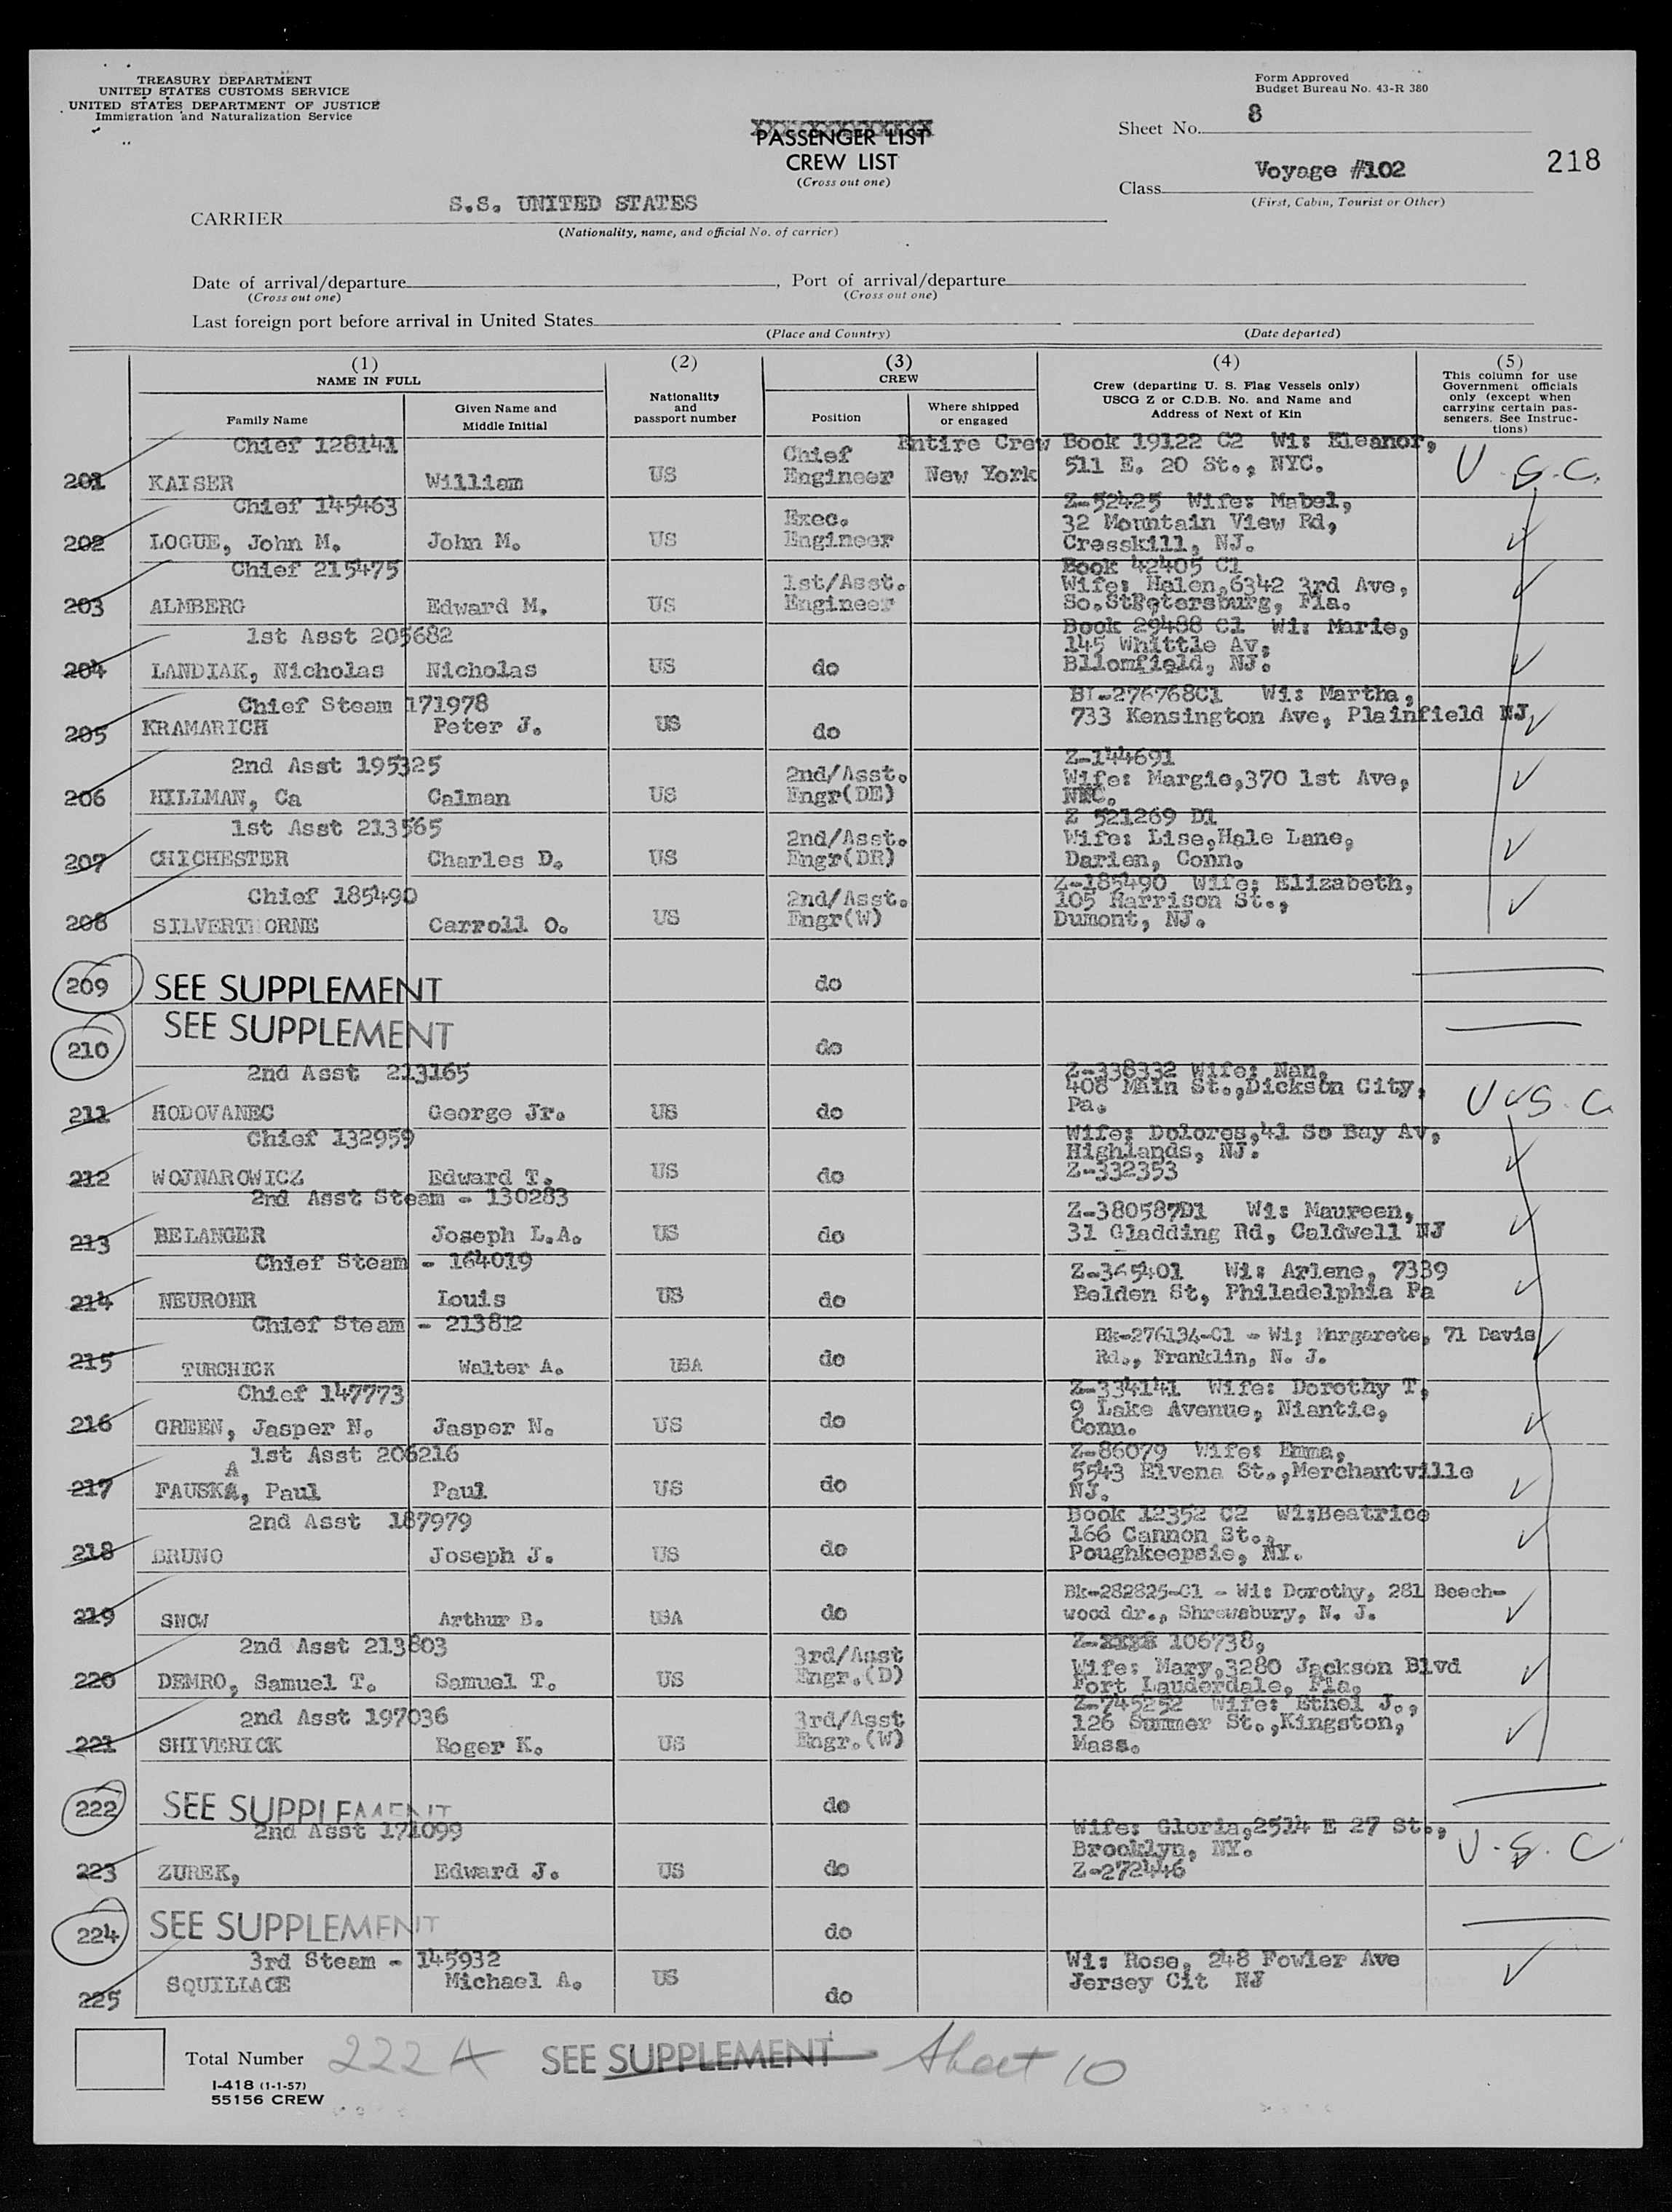 TREASURY DEPARTMENT
UNITED STATES CUSTOMS SERVICE
UNITED STATES DEPARTMENT OF JUSTICE
Immigration and Naturalization Service
Form Approved
Budget Bureau No. 43-R 380
PASSENGER LIST
CREW LIST
(Cross out one)
Sheet No. 8
Voyage #102
218
Class
(First, Cabin, Tourist or Other)
CARRIER S.S. UNITED STATES
(Nationality, name, and official No. of carrier)
Date of arrival/departure , Port of arrival/departure
(Cross out one) (Cross out one)
Last foreign port before arrival in United States
(Place and Country) (Date departed)
(1) (2) (3) (4) (5)
NAME IN FULL
Family Name
Given Name and
Middle Initial
Nationality
and
passport number
CREW
Position
Where shipped
or engaged
Crew (departing U. S. Flag Vessels only)
USCG Z or C.D.B. No. and Name and
Address of Next of Kin
This column for use
Government officials
only (except when
carrying certain pas-
sengers. See Instruc-
tions)
Chief 128141 Chief Entire Crew Book 19122 C2 Wi: Eleanor,
201 KAISER William US Engineer New York 511 E. 20 St., NYC. U.S.C.
Chief 145463 Exec. Z-52425 Wife: Mabel,
32 Mountain View Rd,
202 LOGUE, John M. John M. US Engineer Cresskill, NJ.
Chief 215475 1st/Asst. Book 42405 C1
Wife: Helen,6342 3rd Ave,
203 ALMBERG Edward M. US Engineer So.StPetersburg, Fla.
1st Asst 205682 Book 29488 C1 Wi: Marie,
145 Whittle Av,
204 LANDIAK, Nicholas Nicholas US do Bllomfield, NJ.
Chief Steam 171978 BI-276768C1 Wi: Martha,
205 KRAMARICH Peter J. US do 733 Kensington Ave, Plainfield NJ
2nd Asst 195325 2nd/Asst. Z-144691
Wife: Margie,370 1st Ave,
206 HILLMAN, Ca Calman US Engr(DE) NYC.
1st Asst 213565 2nd/Asst. Z 521269 D1
Wife: Lise,Hale Lane,
207 CHICHESTER Charles D. US Engr(DR) Darien, Conn.
Chief 185490 2nd/Asst. Z-185490 Wife: Elizabeth,
105 Harrison St.,
208 SILVERTHORNE Carroll O. US Engr(W) Dumont, NJ.
209 SEE SUPPLEMENT do
210 SEE SUPPLEMENT do
2nd Asst 213165 Z-338332 Wife: Nan,
408 Main St.,Dickson City,
211 HODOVANEC George Jr. US do Pa. U.S.C.
Chief 132959 Wife: Dolores,41 So Bay Av,
Highlands, NJ.
212 WOJNAROWICZ Edward T. US do Z-332353
2nd Asst Steam - 130283 Z-380587D1 Wi: Maureen,
213 BELANGER Joseph L.A. US do 31 Gladding Rd, Caldwell NJ
Chief Steam - 164019 Z-365401 Wi: Arlene, 7339
214 NEUROHR Louis US do Belden St, Philadelphia Pa
Chief Steam - 213812 Bk-276134-C1 - Wi; Margarete, 71 Davis
215 TURCHICK Walter A. USA do Rd., Franklin, N. J.
Chief 147773 Z-334141 Wife: Dorothy T,
9 Lake Avenue, Niantic,
216 GREEN, Jasper N. Jasper N. US do Conn.
1st Asst 206216 Z-86079 Wife: Emma,
A 5543 Elvena St.,Merchantville
217 FAUSKA, Paul Paul US do NJ.
2nd Asst 187979 Book 12352 C2 Wi:Beatrice
166 Cannon St.,
218 BRUNO Joseph J. US do Poughkeepsie, NY.
Bk-282825-C1 - Wi: Dorothy, 281 Beech-
219 SNOW Arthur B. USA do wood dr., Shrewsbury, N. J.
2nd Asst 213803 3rd/Asst Z- 106738,
Wife: Mary,3280 Jackson Blvd
220 DEMRO, Samuel T. Samuel T. US Engr.(D) Fort Lauderdale, Fla.
2nd Asst 197036 3rd/Asst Z-745252 Wife: Ethel J.,
126 Summer St.,Kingston,
221 SHIVERICK Roger K. US Engr.(W) Mass.
222 SEE SUPPLEMENT do
2nd Asst 171099 Wife: Gloria,2514 E 27 St.,
Brooklyn, NY.
223 ZUREK, Edward J. US do Z-272446 U.S.C
224 SEE SUPPLEMENT do
3rd Steam - 145932 Wi: Rose, 248 Fowler Ave
225 SQUILLACE Michael A. US do Jersey Cit NJ
Total Number 222 A SEE SUPPLEMENT Sheet 10
I-418 (1-1-57)
55156 CREW